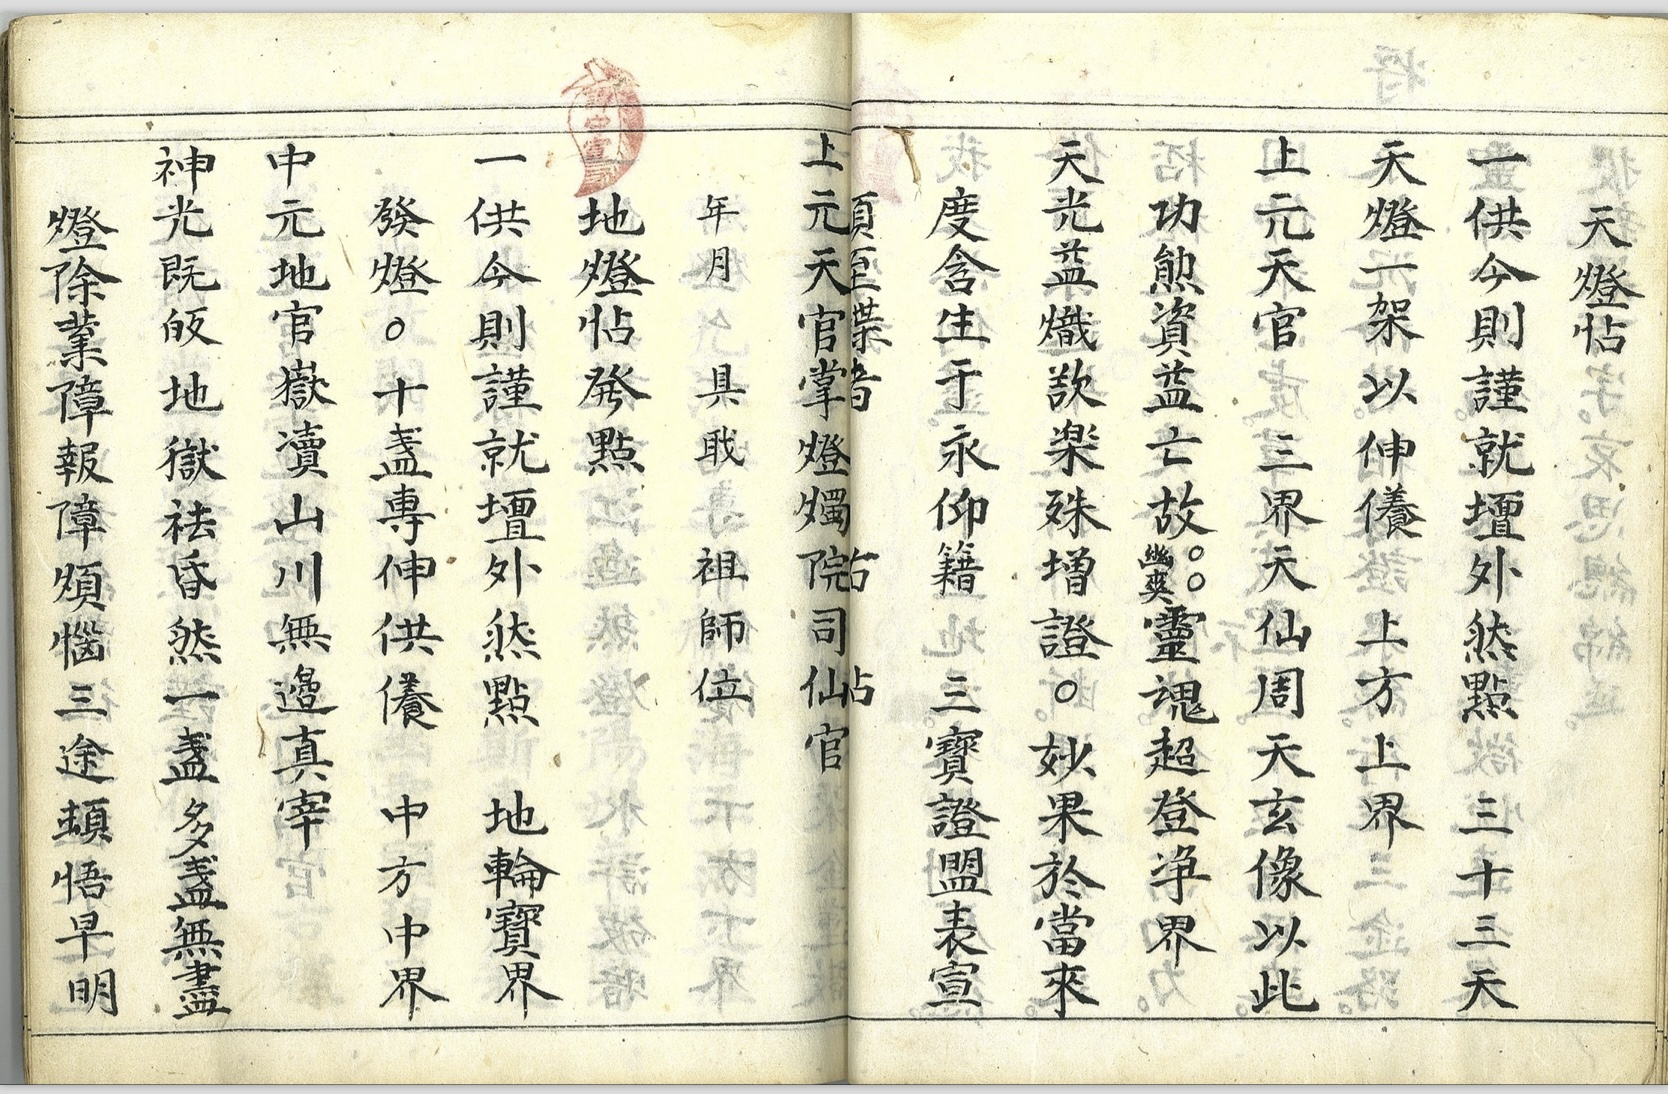 天燈帖
一供今則謹就壇外然點三十三天
天燈一架以伸供養上方上界
上元天官三界天仙周天玄像以此
功勲資益亡故○○幽爽靈魂超登净界
天光益熾歆楽殊增證○妙果於當來
度含生于永仰籍三寶證盟表宣
須至牒者 右帖
上元天官掌燈燭院司仙官
年月 具職 祖師位
地燈帖發點
一供今則謹就壇外然點 地輪寶界
發燈○十盞專伸供養 中方中界
中元地官嶽瀆山川無邉真宰
神光既皈地獄祛昏然一盞多盞無盡
燈除業障報障煩惱三途頓悟早明